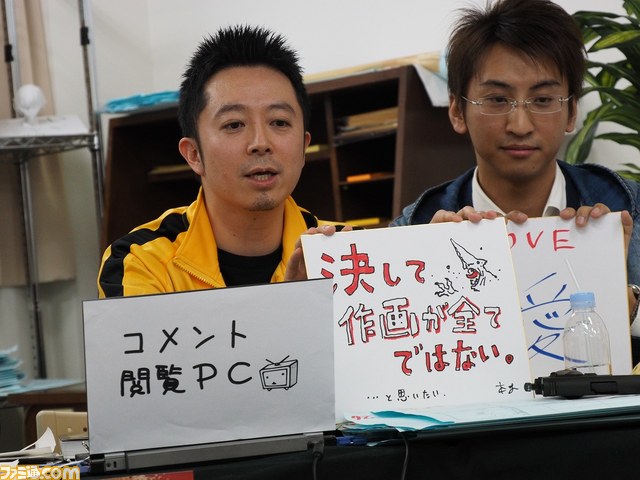 コメント
閲覧PC
決して
作画が全て
ではない。
…と思いたい。
LOVE
愛
ファミ通.com